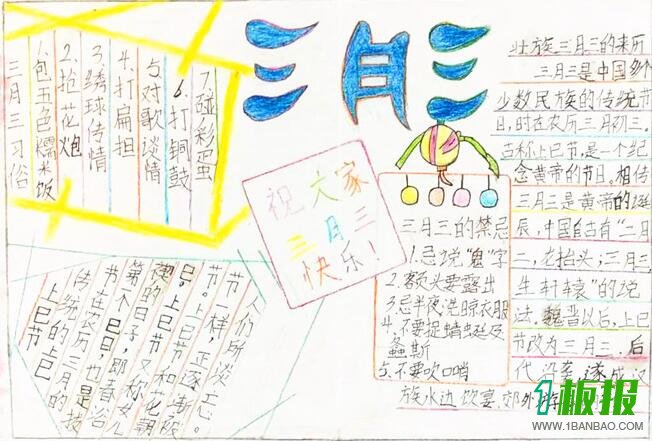 三月三
三月三习俗
1.包五色糯米饭
2.抢花炮
3.绣球传情
4.打扁担
5.对歌谈情
6.打铜鼓
7.碰彩蛋
祝大家
三月三
快乐！
壮族三月三的来历
三月三是中国多个
少数民族的传统节
日,时在农历三月初三。
古称上巳节,是一个纪
念黄帝的节日。相传
三月三是黄帝的诞
辰,中国自古有"二月
二,龙抬头;三月三,
生轩辕"的说
法。魏晋以后,上巳
节改为三月三,后
代沿袭,遂成汉
族水边饮宴、郊外游
三月三的禁忌
1.忌说"鬼"字
2.额头要露出
3.忌半夜洗晾衣服
4.不要捉蜻蜓及
螽斯
5.不要吹口哨
上巳节
传统的上巳
节在农历三月的
第一个巳日,也是
禊的日子,即春浴
日。上巳节又称女儿
节。上巳节和花朝
节一样,正逐渐被
人们所淡忘。
1板报
WWW.1BANBAO.COM